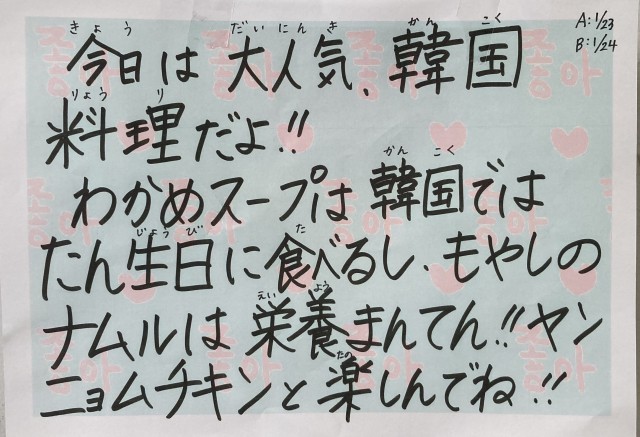 A:1/23
B:1/24
きょう だいにんき かんこく
今日は大人気、韓国
りょうり
料理だよ!!
かんこく
わかめスープは韓国では
じょうび た
たん生日に食べるし、もやしの
えいよう
ナムルは栄養まんてん!!ヤン
たの
ニョムチキンと楽しんでね!!
좋아 좋아 좋아
좋아
좋아 좋아 좋아
좋아 좋아 좋아